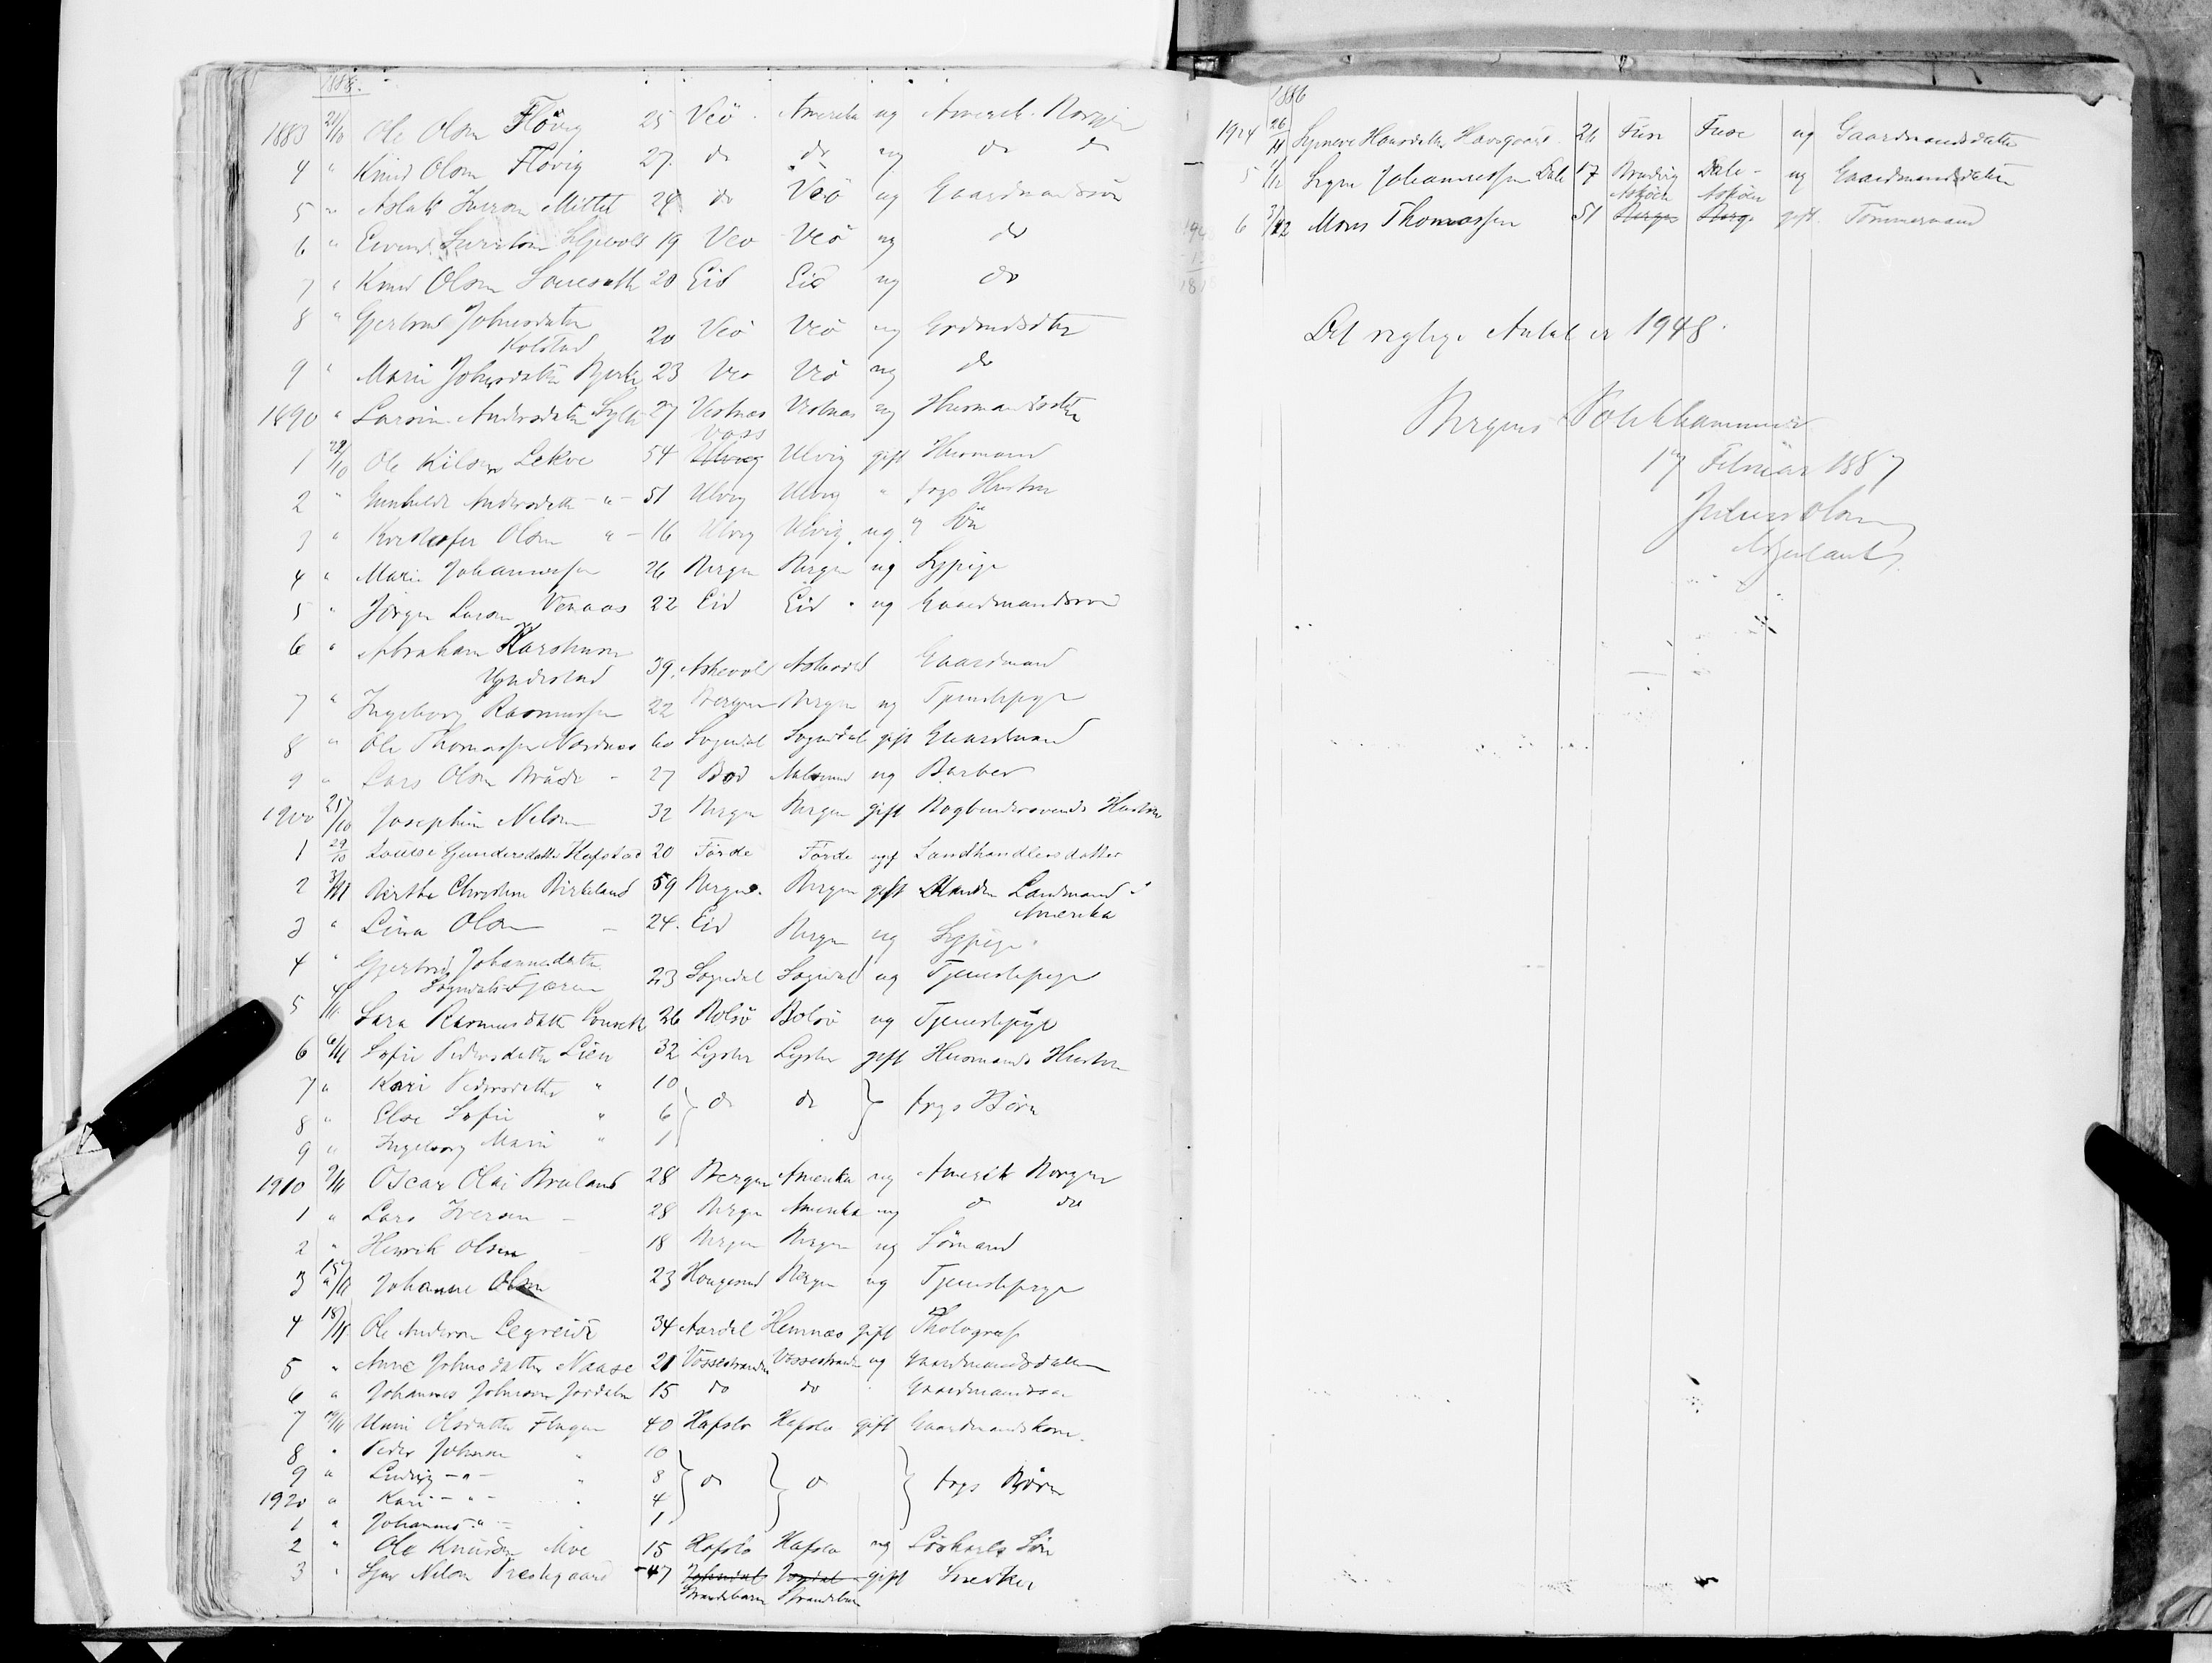 1886.
1883 21/10 Ole Olsen Flövig 25 Veö Amerika ug Amerik. Borger
4 " Knud Olsen Flövig 27 do do ug do do
5 " Aslak Iversen Mittet 24 do Veö ug Gaardmandssön
6 " 19 Veö Veö ug do
7 " Knud Olsen 20 Eid Eid ug do
8 " Gjertrud Johnsdatter
Kolstad 20 Veö Veö ug
9 " Marie Johnsdatter Bjerke 23 Veö Veö ug do
1890 " Andersdatter Sylte 27 Vestnæs Vestnæs ug Husmandsdatter
Voss
1 22/10 Ole Kilsen Lekve 54 Ulvig Ulvig gift Husmand
2 " Gunhilde Andersdatter - " - 51 Ulvig Ulvig " frgs Hustru
3 " Kristofer Olsen " - 16 Ulvig Ulvig ug " Sön
4 " Marie Johannessen 26 Bergen Bergen ug Sypige
5 " Jörgen Larsen Venaas 22 Eid Eid ug Gaardmandssön
6 " Abraham Karstensen
39 Askevold Askevold Gaardmand
7 " Ingeborg Rasmussen 22 Bergen Bergen ug Tjenestepige
8 " Ole Thomassen Nordnæs 60 Sogndal Sogndal gift Gaardmand
9 " Lars Olsen 27 Bod Aalesund ug Barber
1900 25/10 Josephine Nilsen 32 Bergen Bergen gift Bogbindersvends Hustru
1 29/10 Louise Gundersdatter Hafstad 20 Förde Förde ugf Landhandlersdatter
2 3/11 Birthe Christine Birkeland 59 Bergen Bergen gift Manden Landmand i
Amerika
3 " Lina Olsen - 24 Eid Bergen ug Sypige
4 " Gjertrud Johannesdatter
Sogndalsfjæren 23 Sogndal Sogndal ug Tjenestepige
5 4/11 Sara Rasmusdatter 26 Bolsö Bolsö ug Tjenestepige
6 6/11 Sofie Pedersdatter Lien 32 Lyster Lyster gift Husmands Hustru
7 " Kari Pedersdatter " 10
8 " Else Sofie " 6 do do frgs Börn
9 " Ingeborg Marie " 1
1910 9/11 Oscar Olai Bruland 28 Bergen Amerika ug Amerik Borger
1 " Lars Iversen - 28 Bergen Amerika ug do do
2 " Henrik Olsen 18 Bergen Bergen ug Sömand
3 15/11 Johanne Olsen 23 Haugesund Bergen ug Tjenestepige
4 18/11 Ole Andersen Legreide 34 Aardal Hemnæs gift Photograf
5 " Anne Johnsdatter Naase 21 Vossestranden Vossestranden ug Gaardmandsdatter
6 " Johannes Johnsen Jordalen 15 do do Gaardmandssön
7 Unni Olsdatter Flugen 40 Hafslo Hafslo gift Gaardmandskone
8 " Peder Johnsen " 10
9 " Ludvig - " - " 8 do do frgs Börn
1920 " Kari - " - " 4
1 " Johannes - " - 1
2 " Ole Knudsen Moe 15 Hafslo Hafslo ug Löskarls Sön
3 " Nilsen Prestegaard 47 gift Snedker
Strandebarm Strandebarm
1886
1924 26/11 Synneve Hansdatter Havsgaard 26 Fuse Fuse ug Gaardmandsdatter
5 1/12 Signe Johannessen Dale 17 Bruvig Dale - ug Gaardmandsdatter
Askøen Askøen
6 3/12 Mons Thomassen 51 Bergen Berge gift Tömmermand
Det rigtige Antal er 1948.
Bergens Politikammer
17 Februar 1887
Julius Olsen